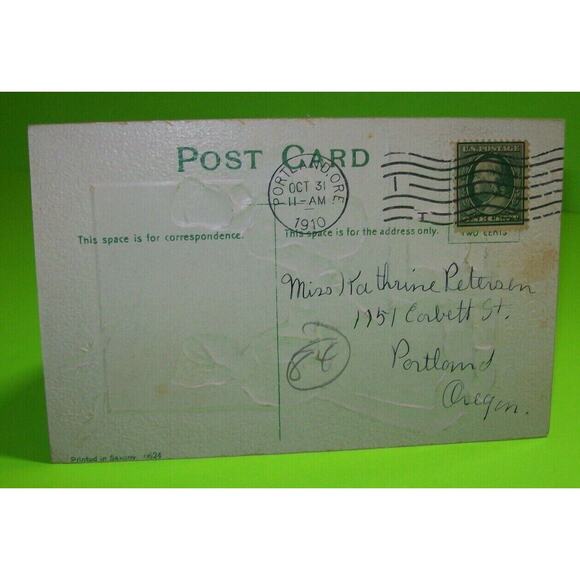 POST CARD
PORTLAND, ORE.
OCT 31
11-AM
1910
U.S. POSTAGE
This space is for correspondence.
This space is for the address only.
TWO CENTS
Miss Kathrine Peterson
1151 Corbett St.
Portland
Oregon.
84
Printed in Saxony